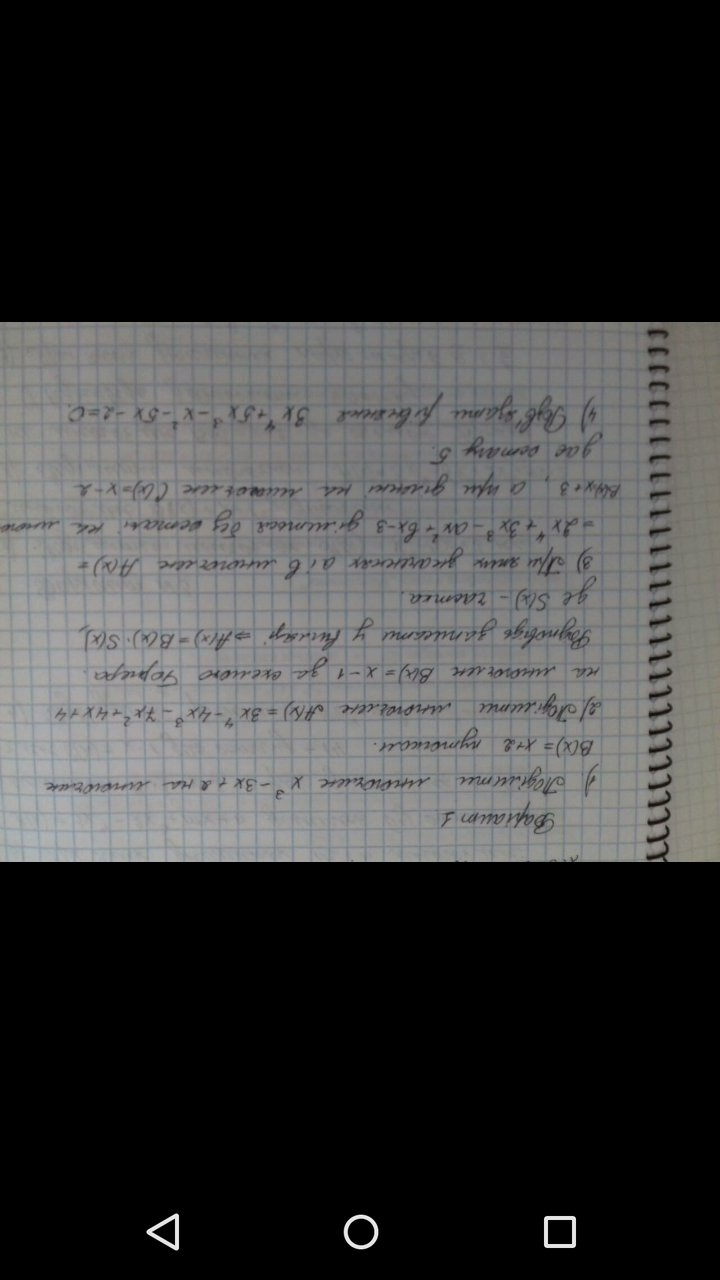 Варіант 1
1) Поділити многочлен x³-3x+2 на многочлен
B(x)=x+2 куточком.
2) Поділити многочлен A(x)=3x⁴-4x³-7x²+4x+4
на многочлен B(x)=x-1 за схемою Горнера.
Відповідь записати у вигляді ⇒ A(x)=B(x)·S(x),
де S(x) - частка.
3) При яких значеннях a і b многочлен A(x)=
=2x⁴+3x³-ax²+bx-3 ділиться без остачі на много
B(x)x+3, а при діленні на многочлен C(x)=x-2
дає остачу 5.
4) Розв'язати рівняння 3x⁴+5x³-x²-5x-2=0.